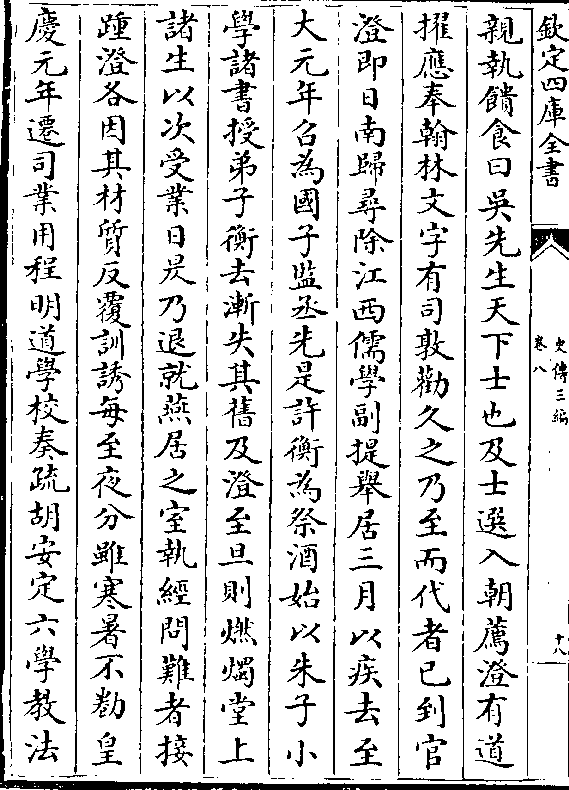 欽定四庫全書
史傳三編
卷八
十八
親執饋食曰吳先生天下士也及士選入朝薦澄有道
擢應奉翰林文字有司敦勸久之乃至而代者已到官
澄即日南歸尋除江西儒學副提舉居三月以疾去至
大元年召為國子監丞先是許衡為祭酒始以朱子小
學諸書授弟子衡去漸失其舊及澄至旦則燃燭堂上
諸生以次受業日昃乃退就燕居之室執經問難者接
踵澄各因其材質反覆訓誘每至夜分雖寒暑不勌皇
慶元年遷司業用程明道學校奏疏胡安定六學教法